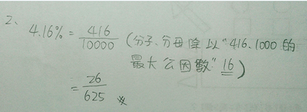 2、
4.16% = 416/10000 (分子.分母除以"416.1000的
最大公因数"16)
= 26/625